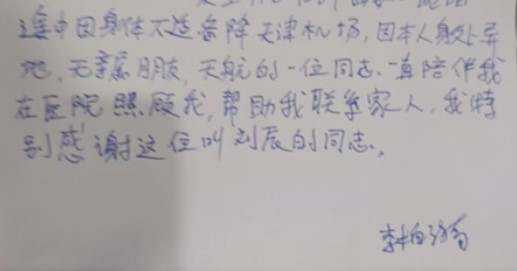 途中因身体不适备降天津机场,因本人身处异
地,无亲朋朋友,天航的一位同志一直陪伴我
在医院照顾我,帮助我联系家人,我特
别感谢这位叫刘辰的同志。
李柏